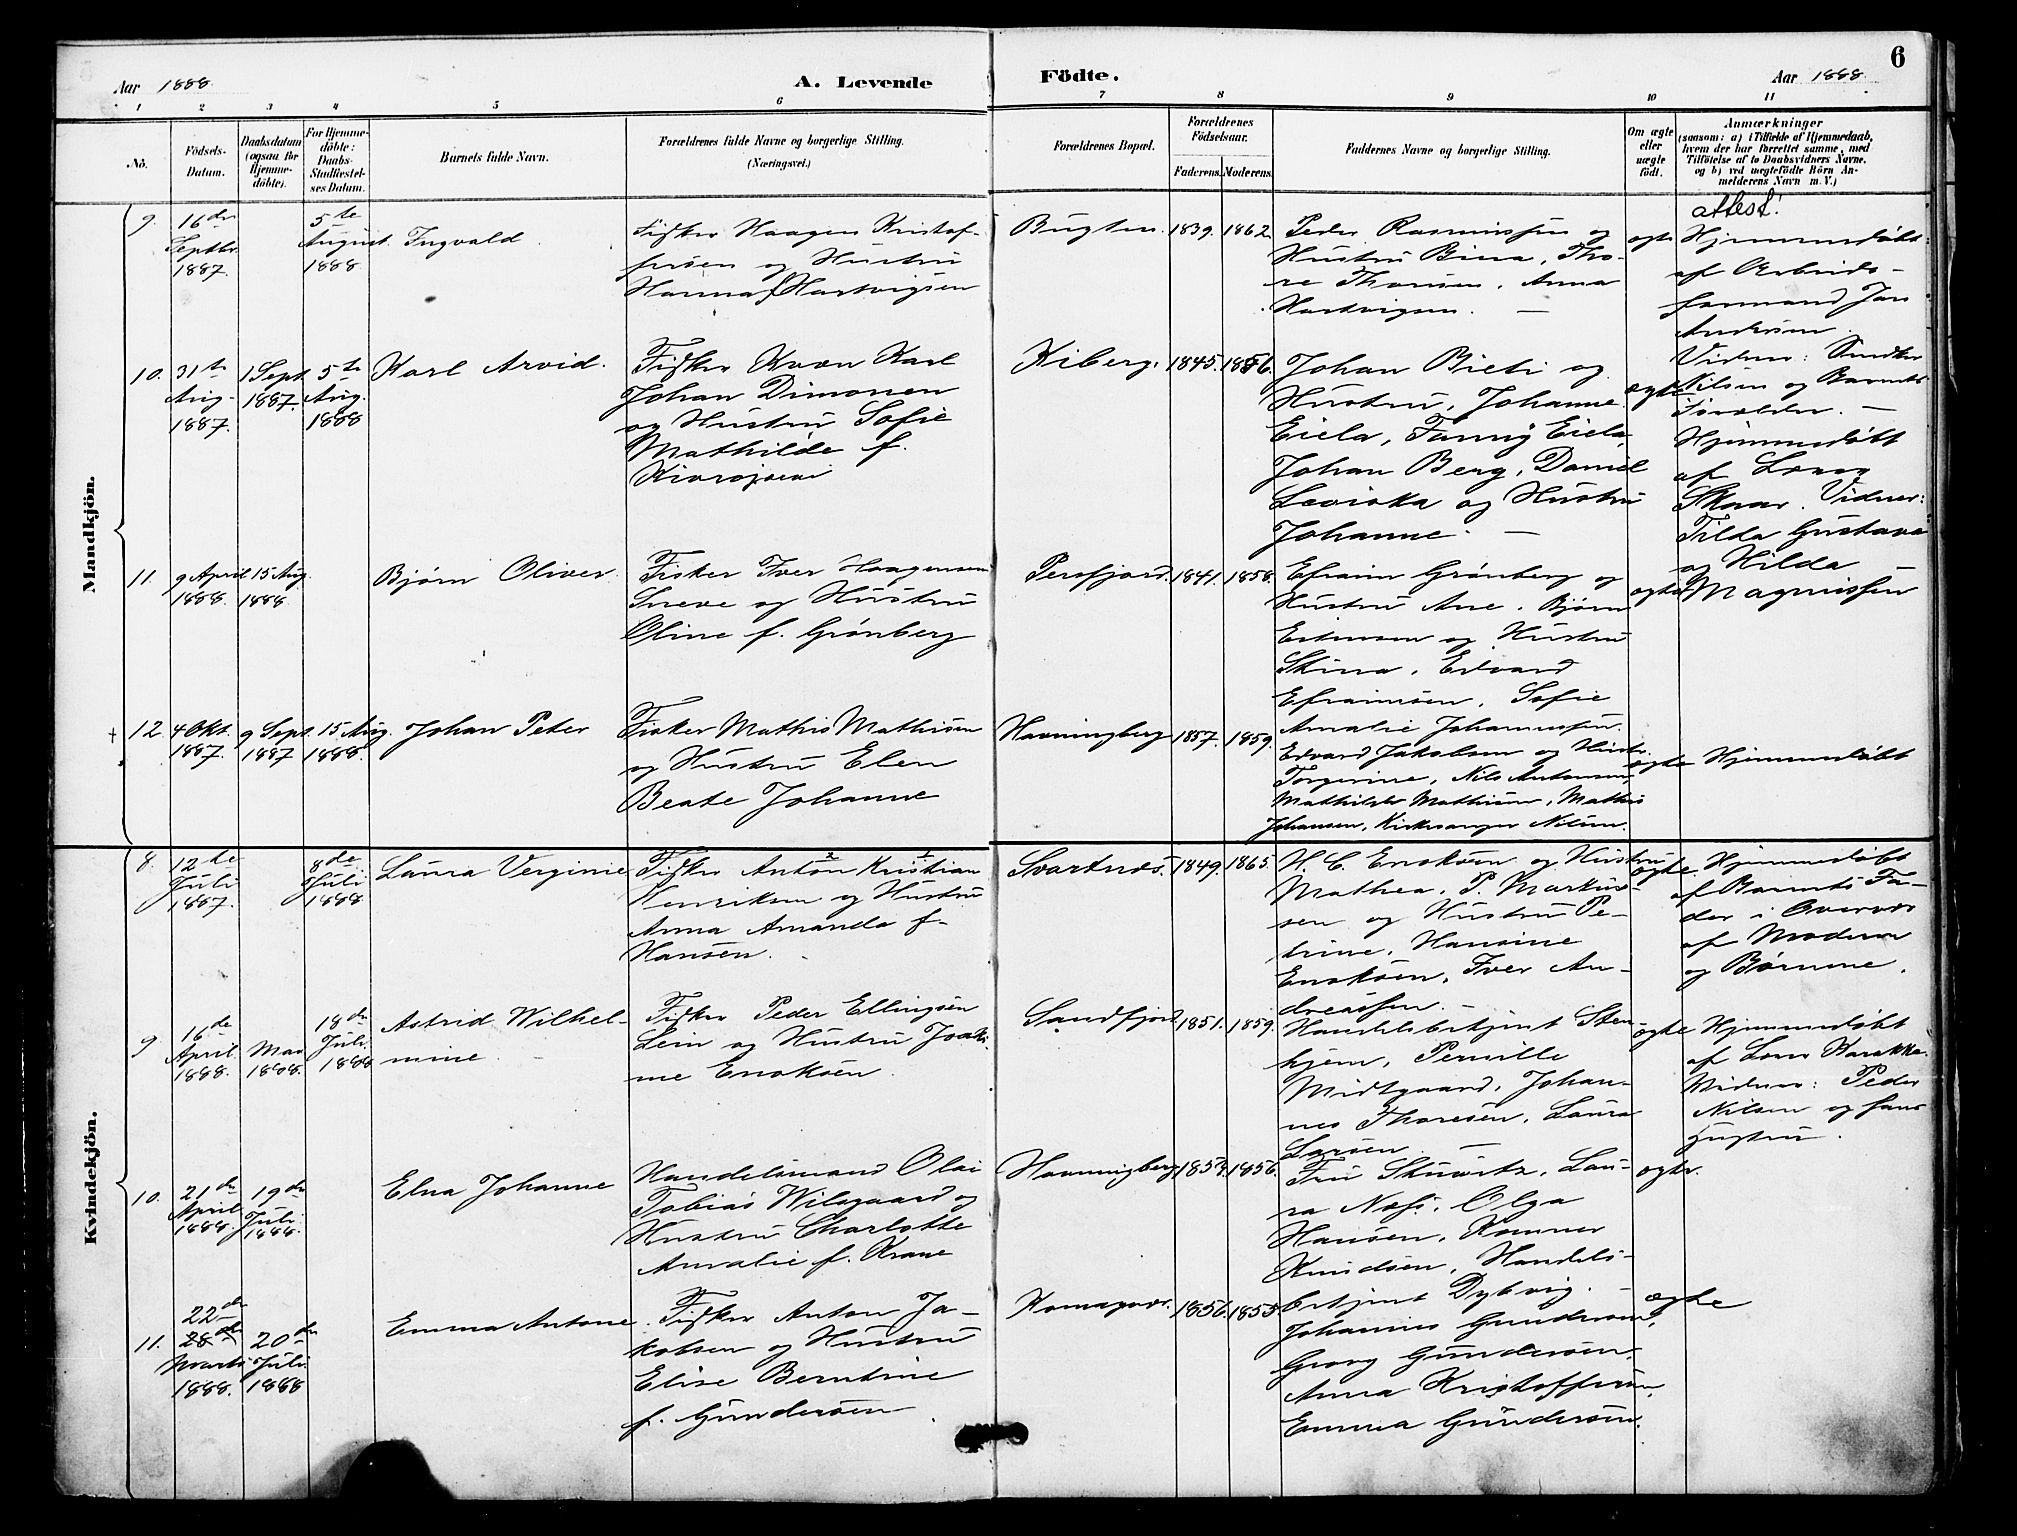 6
Aar 1888.
A. Levende
Födte.
Aar 1888.
1 2 3 4 5 6 7 8 9 10 11
Nô.
Födsels-
Datum.
Daabsdatum
(ogsaa for
Hjemme-
döbte).
For Hjemme-
döbte:
Daabs-
Stadfæstel-
ses Datum.
Barnets fulde Navn.
Forældrenes fulde Navne og borgerlige Stilling.
(Næringsvei.)
Forældrenes Bopæl.
Forældrenes
Födselsaar.
Faderens. Moderens.
Faddernes Navne og borgerlige Stilling.
Om ægte
eller
uægte
födt.
Anmærkninger
(saasom: a) i Tilfælde af Hjemmedaab,
hvem der har forrettet samme, med
Tilföielse af to Daabsvidners Navne,
og b) ved uægtefödte Börn An-
melderens Navn m. V.)
Mandkjön.
9.
16de
Septbr.
1887.
5te
August
1888
Ingvald
Fisker Haagen Kristof-
fersen og Hustru
Hanna f Hartvigsen
Bugten.
1839. 1862.
Peder Rasmussen og
Hustru Bina, Tho-
re Thoresen, Anna
Hartvigsen. —
ægte
attest!
Hjemmedøbt
af Arbeids-
formand Jan
Andersen.
Vidner: Smeder
Nilsen og Barnets
Forældre. —
10.
31te
Aug.
1887.
1 Sept
1887.
5te
Aug.
1888
Karl Arvid.
Fisker Kvæn Karl
Johan Dimonen
og Hustru Sofie
Mathilde f.
Kiberg.
1845. 1856.
Johan Bieti og
Hustru, Johanne
Eiela, Fanny Eiela,
Johan Berg, Daniel
Leviska og Hustru
Johanne. —
ægte
Hjemmedøbt
af Lovog
Skaar. Vidner:
Tilda Gustava
og Hilda
Magnussen
11.
9 April
1888.
15 Aug.
1888
Bjørn Oliver.
Fisker Iver Haagensen
Sneve og Hustru
Oline f. Grønberg
Persfjord.
1841. 1858.
Efraim Grønberg og
Hustru Ane, Bjørn
Estensen og Hustru
Stina, Edvard
Efraimsen, Sofie
Amalie Johannessen.
ægte
12.
4 Okt.
1887.
9 Sept.
1887
15 Aug.
1888.
Johan Peter
Fisker Mathis Mathisen
og Hustru Elen
Beate Johanne
Havningberg
1857. 1859.
Edvard Jakobsen og Hustr.
Torgerine, Nils Antonsen,
Mathilde Mathisen, Mathis
Johansen, Kirkesanger Nilsen.
ægte
Hjemmedøbt
Kvindekjön.
8.
12te
Juli
1887.
8de
Juli
1888
Laura Verginie
Fisker Anton Kristian
Henriksen og Hustru
Anna Amanda f.
Hansen.
Svartnæs.
1849. 1865.
H. C. Enoksen og Hustru
Mathea, P. Markus-
sen og Hustru Pe-
trine, Hansine
Enoksen, Iver An-
dreassen. —
ægte.
Hjemmedøbt
af Barnets Fa-
der i Overvær
af Moderen
og Børnene.
9
16de
April
1888.
Mai
1888.
18de
Juli
1888
Astrid Wilhel-
mine
Fisker Peder Ellingsen
Lein og Hustru Joaki-
me Enoksen.
Sandfjord
1851. 1859.
Handelsbetjent Sten-
hjem, Pernille
Midtgaard, Johan-
nes Thoresen, Laura
Larsen —
ægte
Hjemmedøbt
af Lars Karakka.
Vidner: Peder
Nilsen og hans
Hustru.
10.
21de
April
1888.
19de
Juli
1888.
Elna Johanne
Handelsmand Olai
Tobias Wilsgaard og
Hustru Charlotte
Amalie f. Krane
Havningberg
1856.
Fru Skwartz, Lau-
ra Nos, Olga
Hansen, Kommer
Knudsen, Handels-
betjent Dybvig. —
ægte.
11.
22de
28de
Marts
1888.
20de
Juli
1888
Emma Antone
Fisker Anton Ja-
kobsen og Hustru
Elise Berntine
f. Gundersen
Komagvær.
1856. 1855.
Johannes Gundersen,
Georg Gundersen,
Anna Kristoffersen,
Emma Gundersen.
ægte